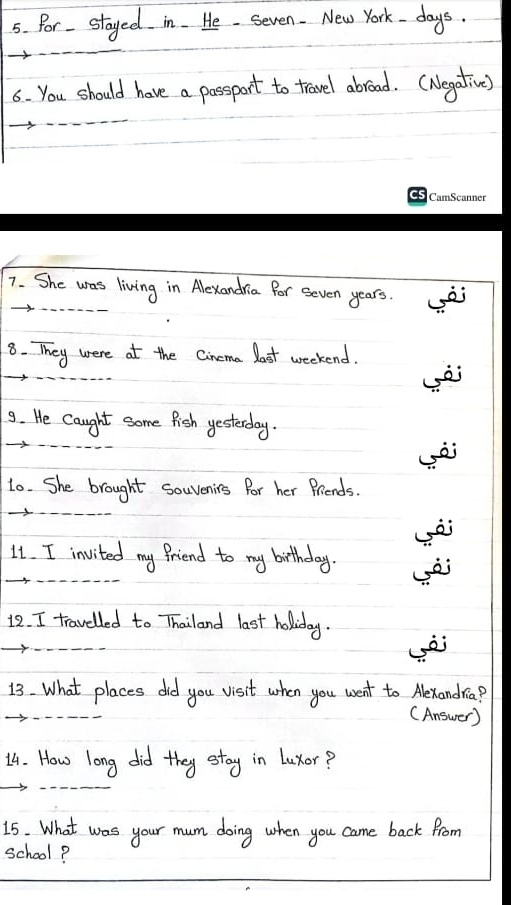 5- For - stayed - in - He - seven - New York - days.
6- You should have a passport to travel abroad. (Negative)
CS CamScanner
7- She was living in Alexandria for seven years. نفي
8- They were at the Cinema last weekend. نفي
9- He caught some fish yesterday. نفي
10- She brought souvenirs for her friends. نفي
11- I invited my friend to my birthday. نفي
12- I travelled to Thailand last holiday. نفي
13- What places did you visit when you went to Alexandria?
(Answer)
14- How long did they stay in Luxor?
15- What was your mum doing when you came back from
school?